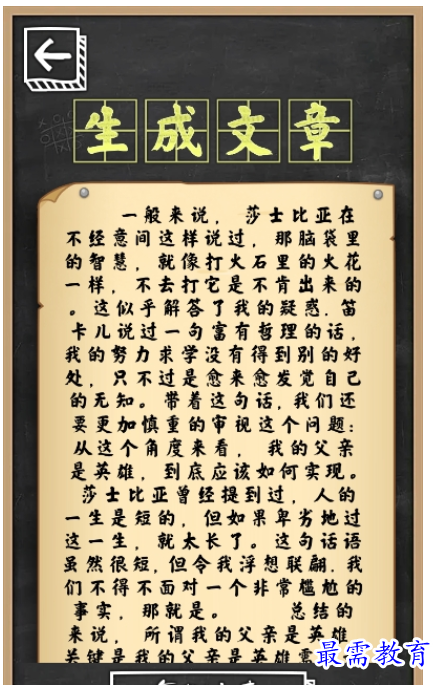 生成文章
一般来说，莎士比亚在
不经意间这样说过，那脑袋里
的智慧，就像打火石里的火花
一样，不去打它是不肯出来的
。这似乎解答了我的疑惑.笛
卡儿说过一句富有哲理的话，
我的努力求学没有得到别的好
处，只不过是愈来愈发觉自己
的无知。带着这句话，我们还
要更加慎重的审视这个问题：
从这个角度来看，我的父亲
是英雄，到底应该如何实现。
莎士比亚曾经提到过，人的
一生是短的，但如果卑劣地过
这一生，就太长了。这句话语
虽然很短，但令我浮想联翩.我
们不得不面对一个非常尴尬的
事实，那就是。 总结的
来说，所谓我的父亲是英雄
关键是我的父亲是英雄需
最需教育